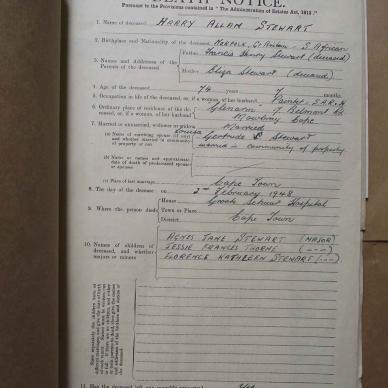 DEATH NOTICE.
Pursuant to the Provisions contained in "The Administration of Estates Act, 1913."
1. Name of deceased HARRY ALLAN STEWART
2. Birthplace and Nationality of the deceased NORFOLK, Gt Britain - S. African
3. Names and Addresses of the Parents of the deceased
Father Francis Henry Stewart (deceased)
Mother Eliza Stewart (deceased)
4. Age of the deceased 74 years 7 months
5. Occupation in life of the deceased, or, if a woman, of her husband Painter S.A.R & H
6. Ordinary place of residence of the deceased, or, if a woman, of her husband Belmont Rd
Mowbray Cape
7. Married or unmarried, widower or widow Married
(a) Name of surviving spouse (if any) and whether married in community of property or not
Louisa Gertrude Stewart
married in community of property
(b) Name or names and approximate date of death of predeceased spouse or spouses
(c) Place of last marriage Cape Town
8. The day of the decease on 2nd February 1948
9. Where the person died
House Groote Schuur Hospital
Town or Place
District Cape Town
10. Names of children of deceased, and whether majors or minors
AGNES JANE STEWART (MAJOR)
JESSIE FRANCES THORNE (---)
FLORENCE KATHLEEN STEWART (---)
11. Has the deceased left any Yes